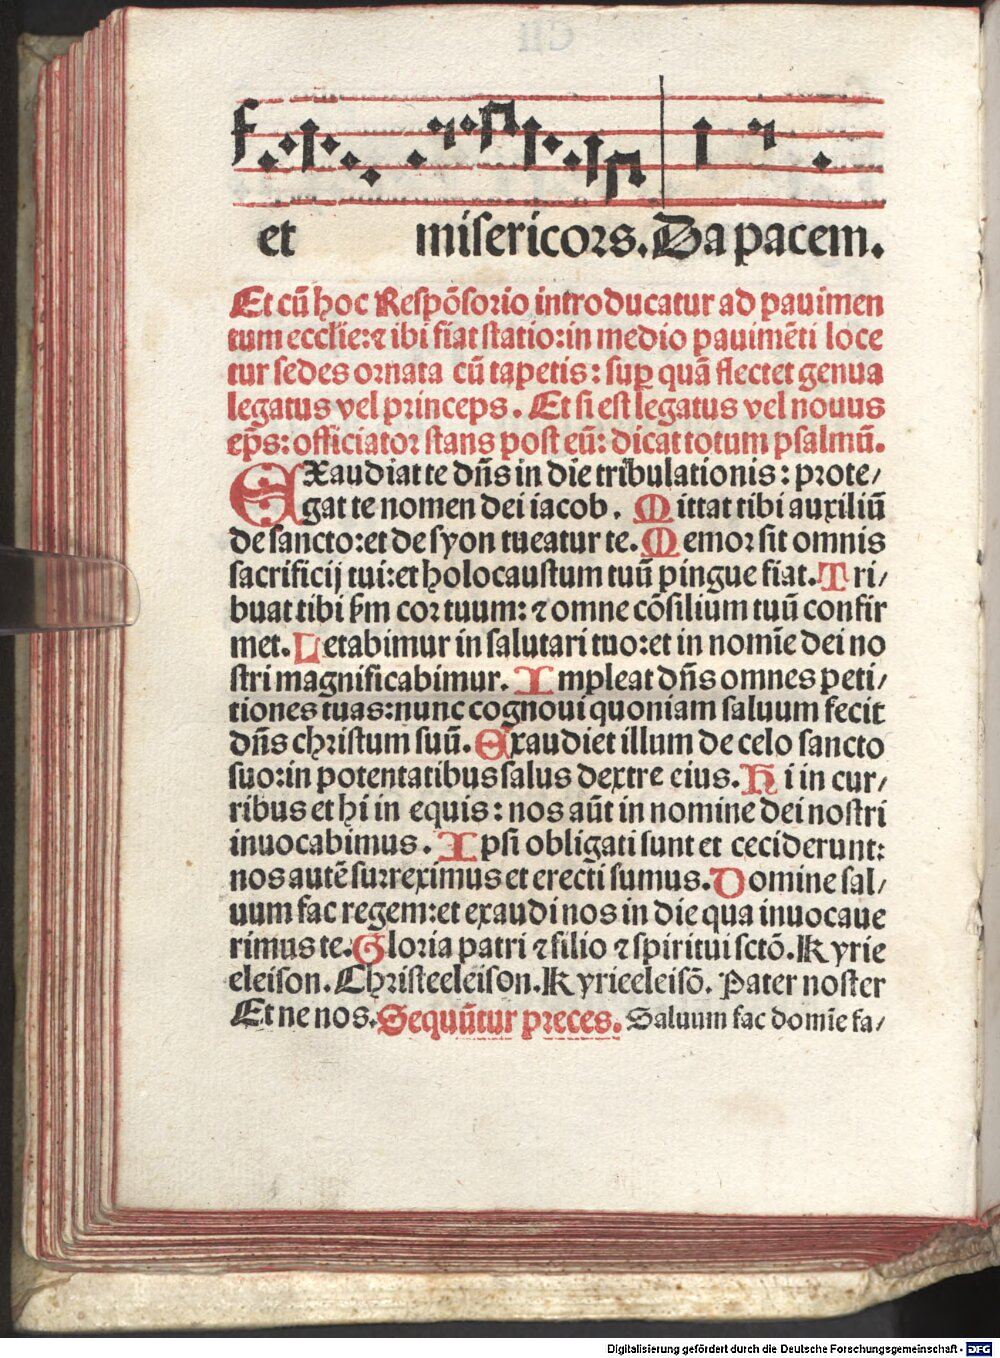 et misericors. Da pacem.
Et cū hoc Respōsorio introducatur ad pauimen
tum ecclie: ⁊ ibi fiat statio: in medio pauimēti loce
tur sedes ornata cū tapetis: suꝑ quā flectet genua
legatus vel princeps. Et si est legatus vel nouus
ep̄s: officiator stans post eū: dicat totum psalmū.
EXaudiat te dn̄s in die tribulationis: prote/
gat te nomen dei iacob. Mittat tibi auxiliū
de sancto: et de syon tueatur te. Memor sit omnis
sacrificij tui: et holocaustum tuū pingue fiat. Tri/
buat tibi ẜm cor tuum: ⁊ omne cōsilium tuū confir
met. Letabimur in salutari tuo: et in nomīe dei no
stri magnificabimur. Impleat dn̄s omnes peti/
tiones tuas: nunc cognoui quoniam saluum fecit
dn̄s christum suū. Exaudiet illum de celo sancto
suo: in potentatibus salus dextre eius. Hi in cur/
ribus et hi in equis: nos aūt in nomine dei nostri
inuocabimus. Ipsi obligati sunt et ceciderunt:
nos autē surreximus et erecti sumus. Domine sal/
uum fac regem: et exaudi nos in die qua inuocaue
rimus te. Gloria patri ⁊ filio ⁊ spiritui sctō. Kyrie
eleison. Christeeleison. Kyrieeleisō. Pater noster
Et ne nos. Sequūtur preces. Saluum fac domīe fa/
Digitalisierung gefördert durch die Deutsche Forschungsgemeinschaft - DFG